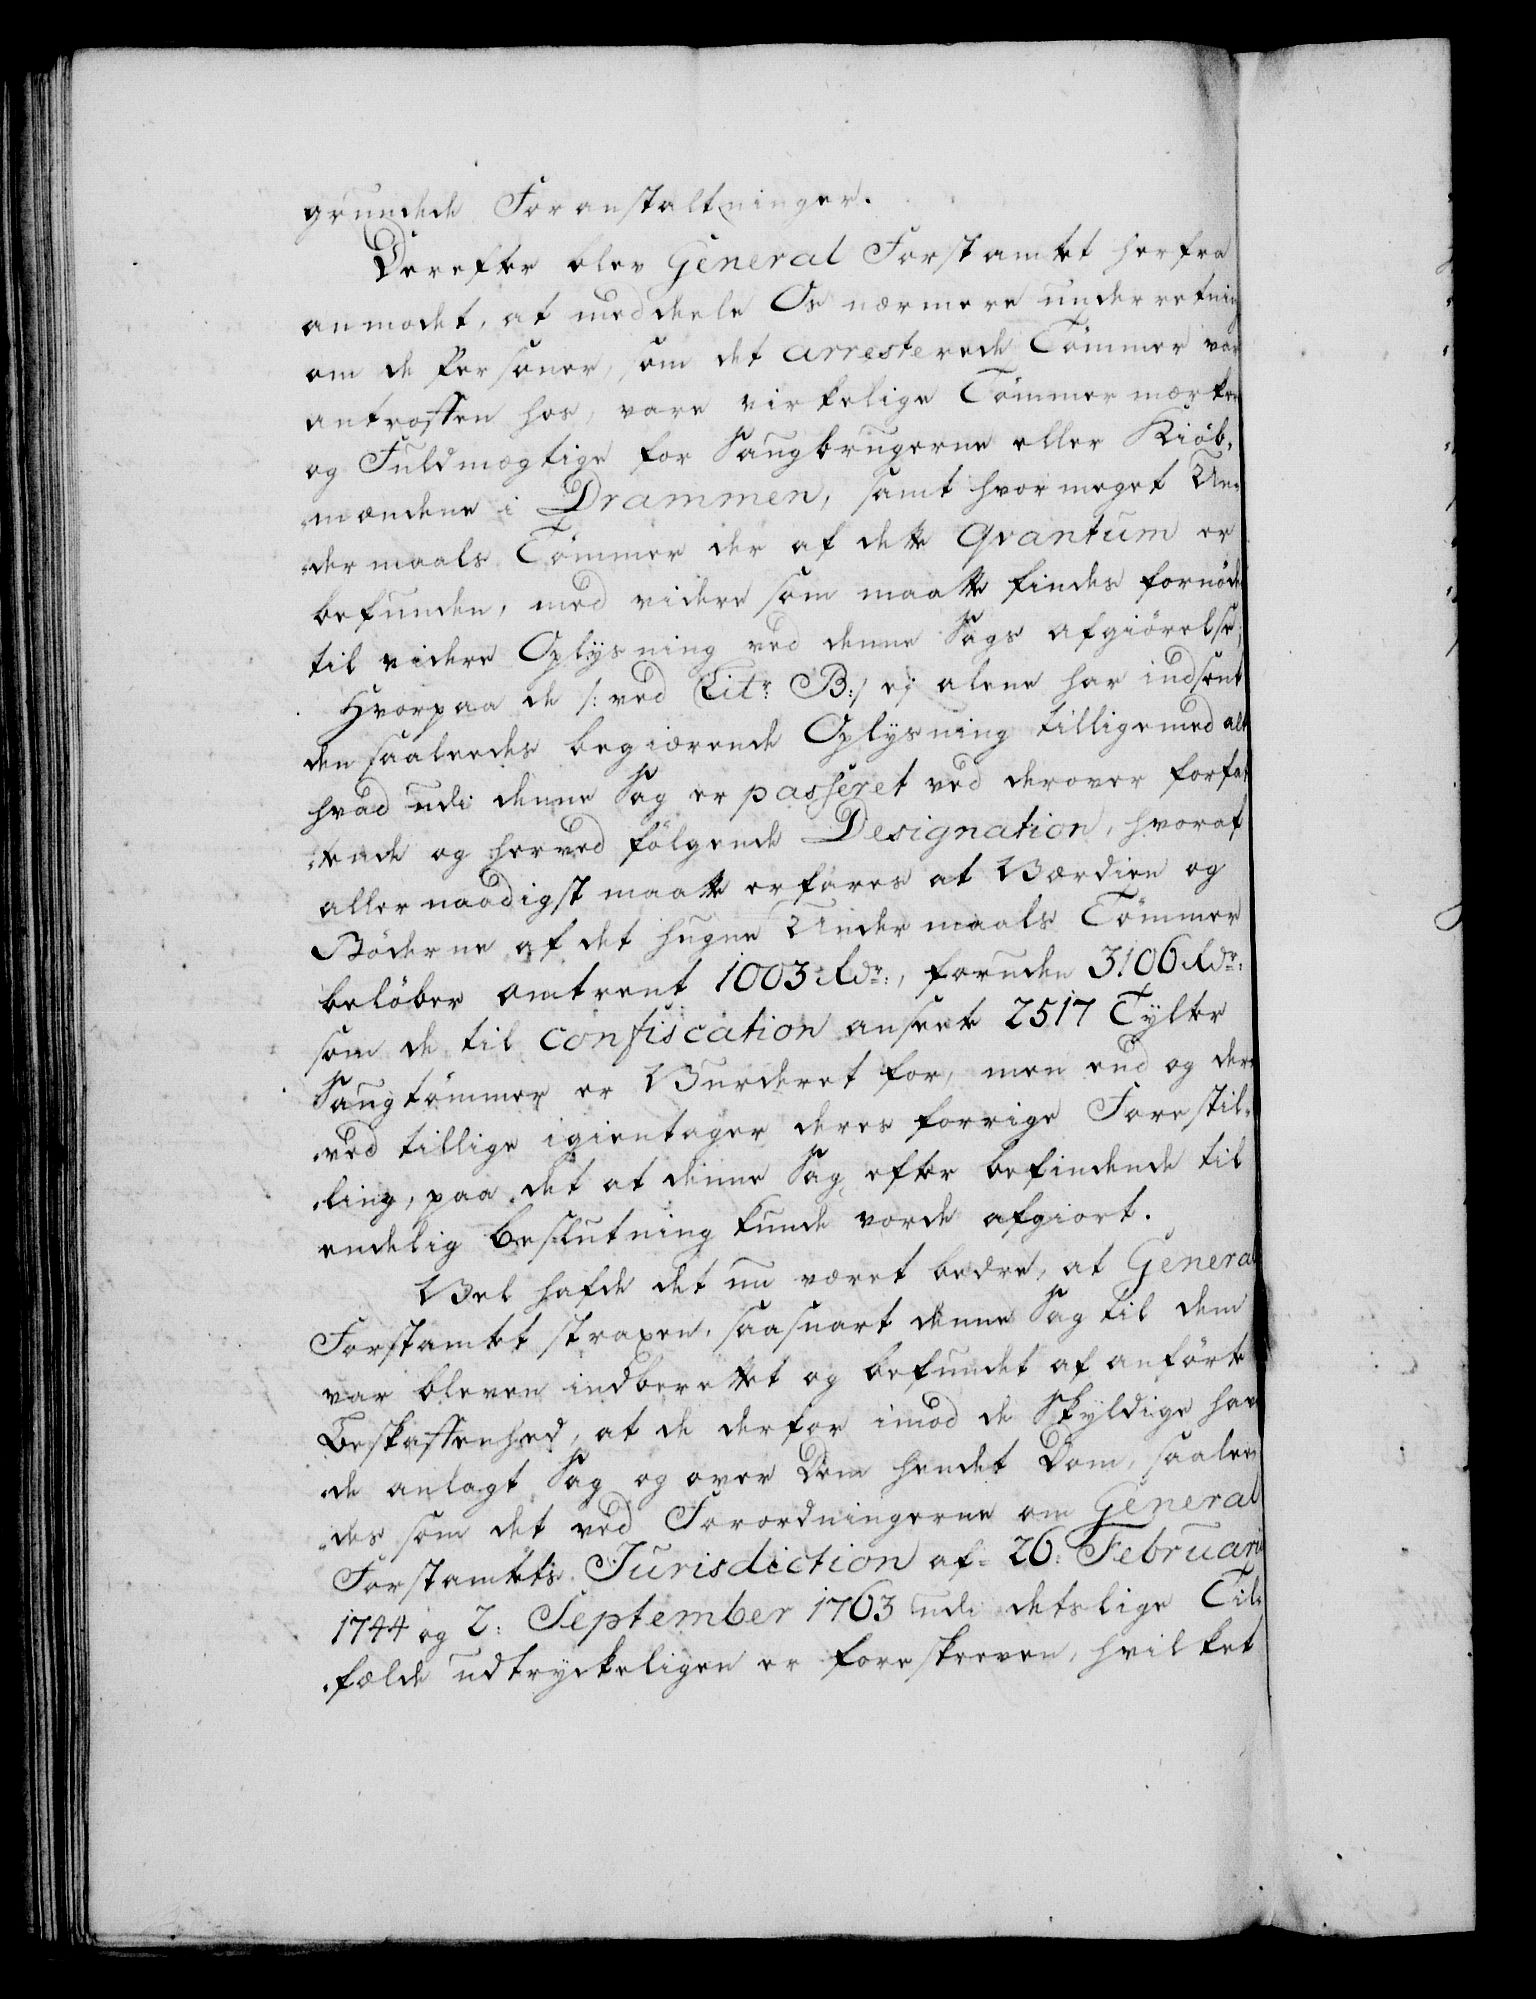 grundede Foranstaltninger.
Derefter blev General Forstamtet herfra
anmodet, at meddeele Os nærmere underretning
om de Personer, som det arresterede Tömmer var
antroffen hos, vare virkelige Tömmermærker
og Fuldmægtige for Saugbrugerne eller Kiöb-
mændene i Drammen, samt hvormeget Un-
dermaals Tömmer der af dette Qvantum er
befunden, med videre som maatte findes fornöden
til videre Oplysning ved denne Sags afgiörelse,
Hvorpaa de /: ved Litr: B:/ ej alene har indsendt
den saaledes begiærende Oplysning tilligemed alt
hvad udi denne Sag er passeret ved derover forfat-
tende og herved fölgende Designation, hvoraf
allernaadigst maatte erfares at Værdien og
Böderne af det hugne Undermaals Tömmer
belöber omtrent 1003 Rdr:, foruden 3106 Rdr:
som de til confiscation ansette 2517 Tylter
Saugtömmer er Vurderet for, men end og der-
ved tillige igientager deres forrige Forestil-
ling, paa det at denne Sag efter befindende til
endelig Beslutning kunde vorde afgiort.
Vel hafde det nu været bedre, at General
Forstamtet straxen, saasnart denne Sag til dem
var bleven indberettet og befundet af anförte
Beskaffenhed, at de derfor imod de Skyldige hav-
de anlagt Sag og over Dem hendet Dom, saalee-
des som det ved Forordningerne om General
Forstamtets Jurisdiction af 26: Februarii
1744 og 2: September 1763 udi detslige Til-
fælde udtryckeligen er foreskreven, hvilket